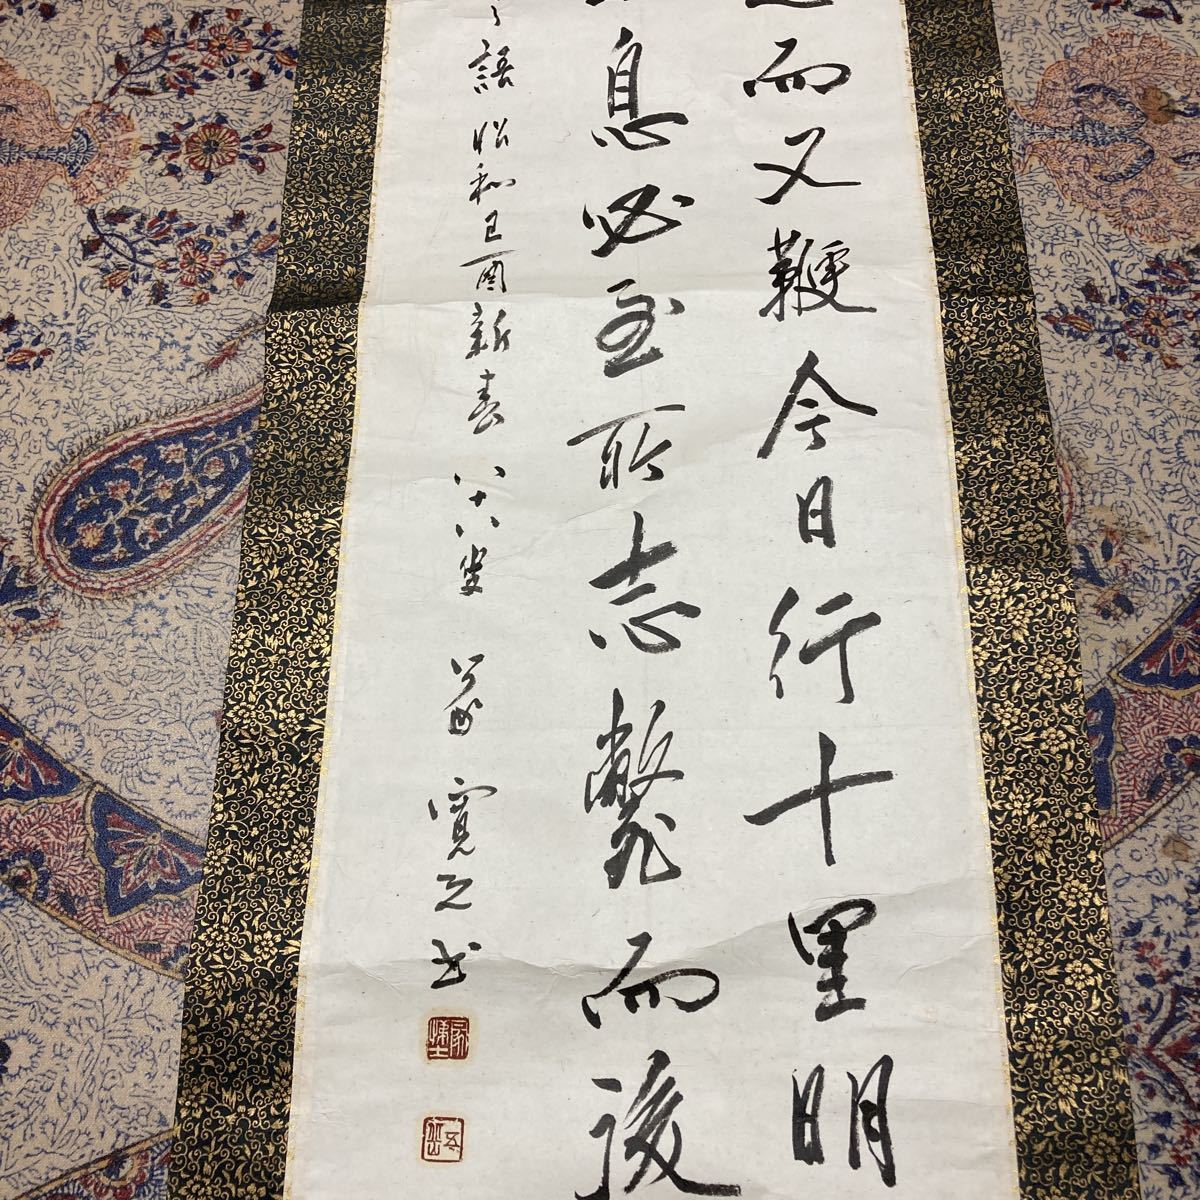 而又鞭今日行十里明
息必至所志斃而後
語昭和己酉新春八十八叟 寛之書